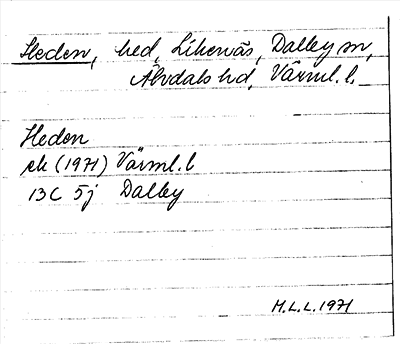 Heden, hed, Likenäs, Dalby sn,
Älvdals hd, Värml. l.
Heden
ek (1971) Värml. l
13C 5j Dalby
M.L.L. 1971